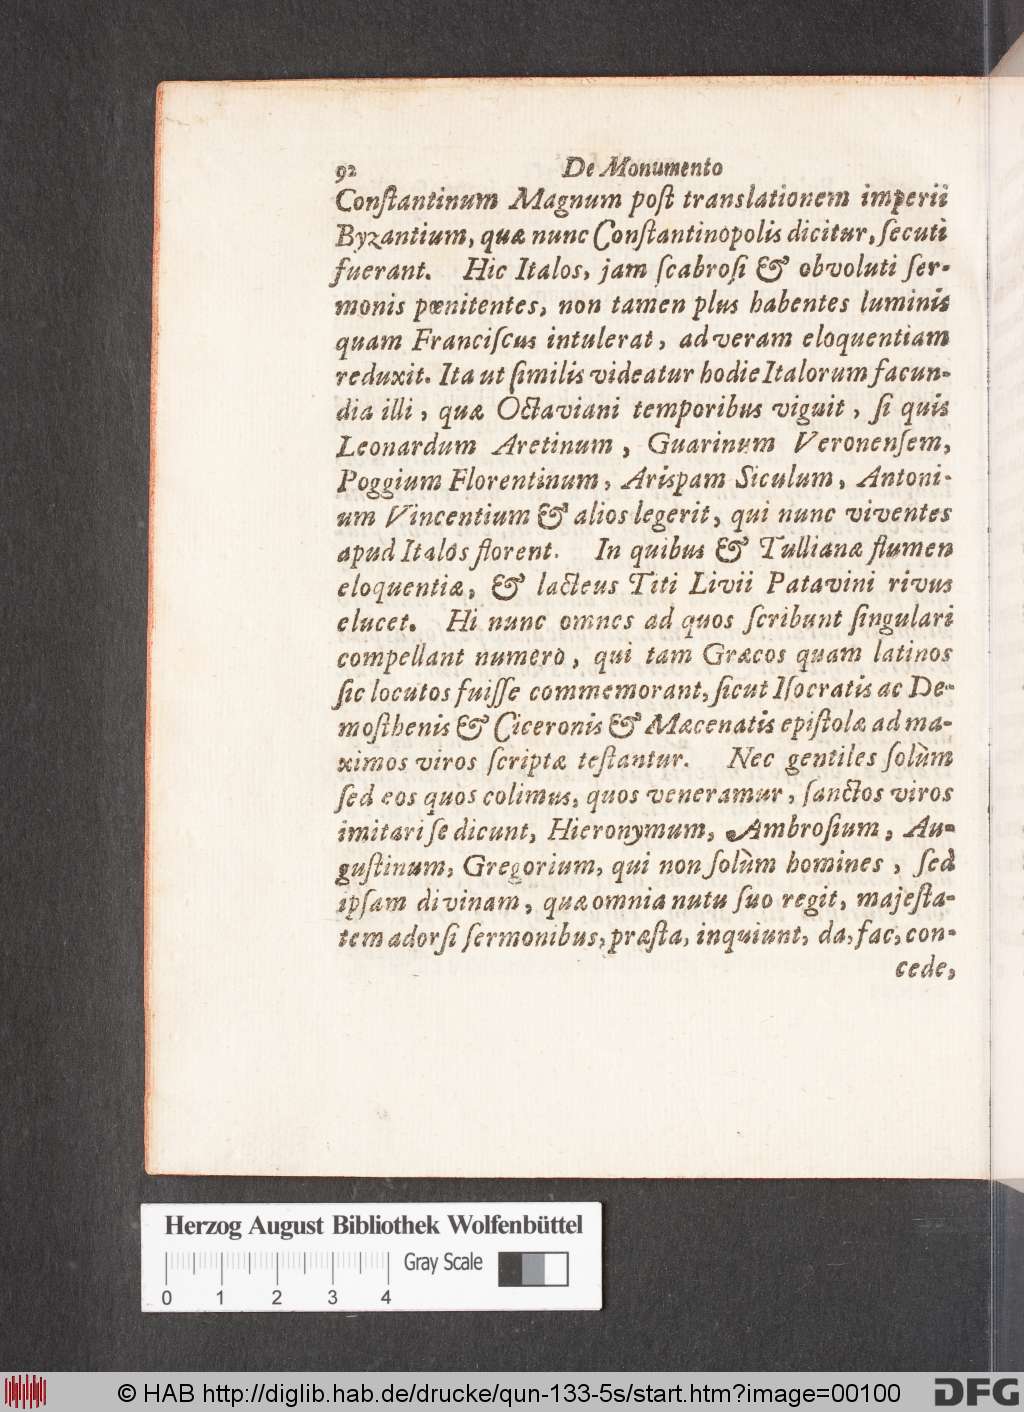 92 De Monumento
Conſtantinum Magnum poſt translationem imperii
Byzantium, quæ nunc Conſtantinopolis dicitur, ſecuti
fuerant. Hic Italos, jam ſcabroſi & obvoluti ſer-
monis pœnitentes, non tamen plus habentes luminis
quam Franciſcus intulerat, ad veram eloquentiam
reduxit. Ita ut ſimilis videatur hodie Italorum facun-
dia illi, quæ Octaviani temporibus viguit, ſi quis
Leonardum Aretinum, Guarinum Veronenſem,
Poggium Florentinum, Arispam Siculum, Antoni-
um Vincentium & alios legerit, qui nunc viventes
apud Italos florent. In quibus & Tullianæ flumen
eloquentiæ, & lacteus Titi Livii Patavini rivus
elucet. Hi nunc omnes ad quos ſcribunt ſingulari
compellant numero, qui tam Græcos quam latinos
ſic locutos fuiſſe commemorant, ſicut Iſocratis ac De-
moſthenis & Ciceronis & Mæcenatis epiſtolæ ad ma-
ximos viros ſcriptæ teſtantur. Nec gentiles ſolùm
ſed eos quos colimus, quos veneramur, ſanctos viros
imitari ſe dicunt, Hieronymum, Ambroſium, Au-
guſtinum, Gregorium, qui non ſolùm homines, ſed
ipſam divinam, quæ omnia nutu ſuo regit, majeſta-
tem adorſi ſermonibus, præſta, inquiunt, da, fac, con-
cede,
Herzog August Bibliothek Wolfenbüttel
Gray Scale
0 1 2 3 4
© HAB http://diglib.hab.de/drucke/qun-133-5s/start.htm?image=00100
DFG